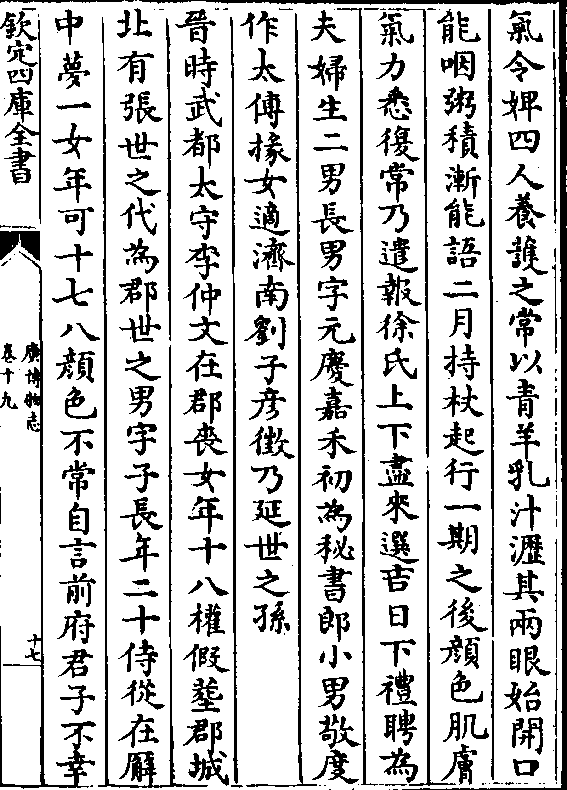 氣令婢四人養護之常以青羊乳汁瀝其兩眼始開口
能咽粥積漸能語二月持杖起行一期之後顔色肌膚
氣力悉復常乃遣報徐氏上下盡來選吉日下禮聘為
夫婦生二男長男字元慶嘉禾初為秘書郎小男敬度
作太傅掾女適濟南劉子彦徴乃延世之孫
晉時武都太守李仲文在郡喪女年十八權假塟郡城
北有張世之代為郡世之男字子長年二十侍從在廨
中夢一女年可十七八顔色不常自言前府君子不幸
欽定四庫全書
廣博物志
卷十九
十七